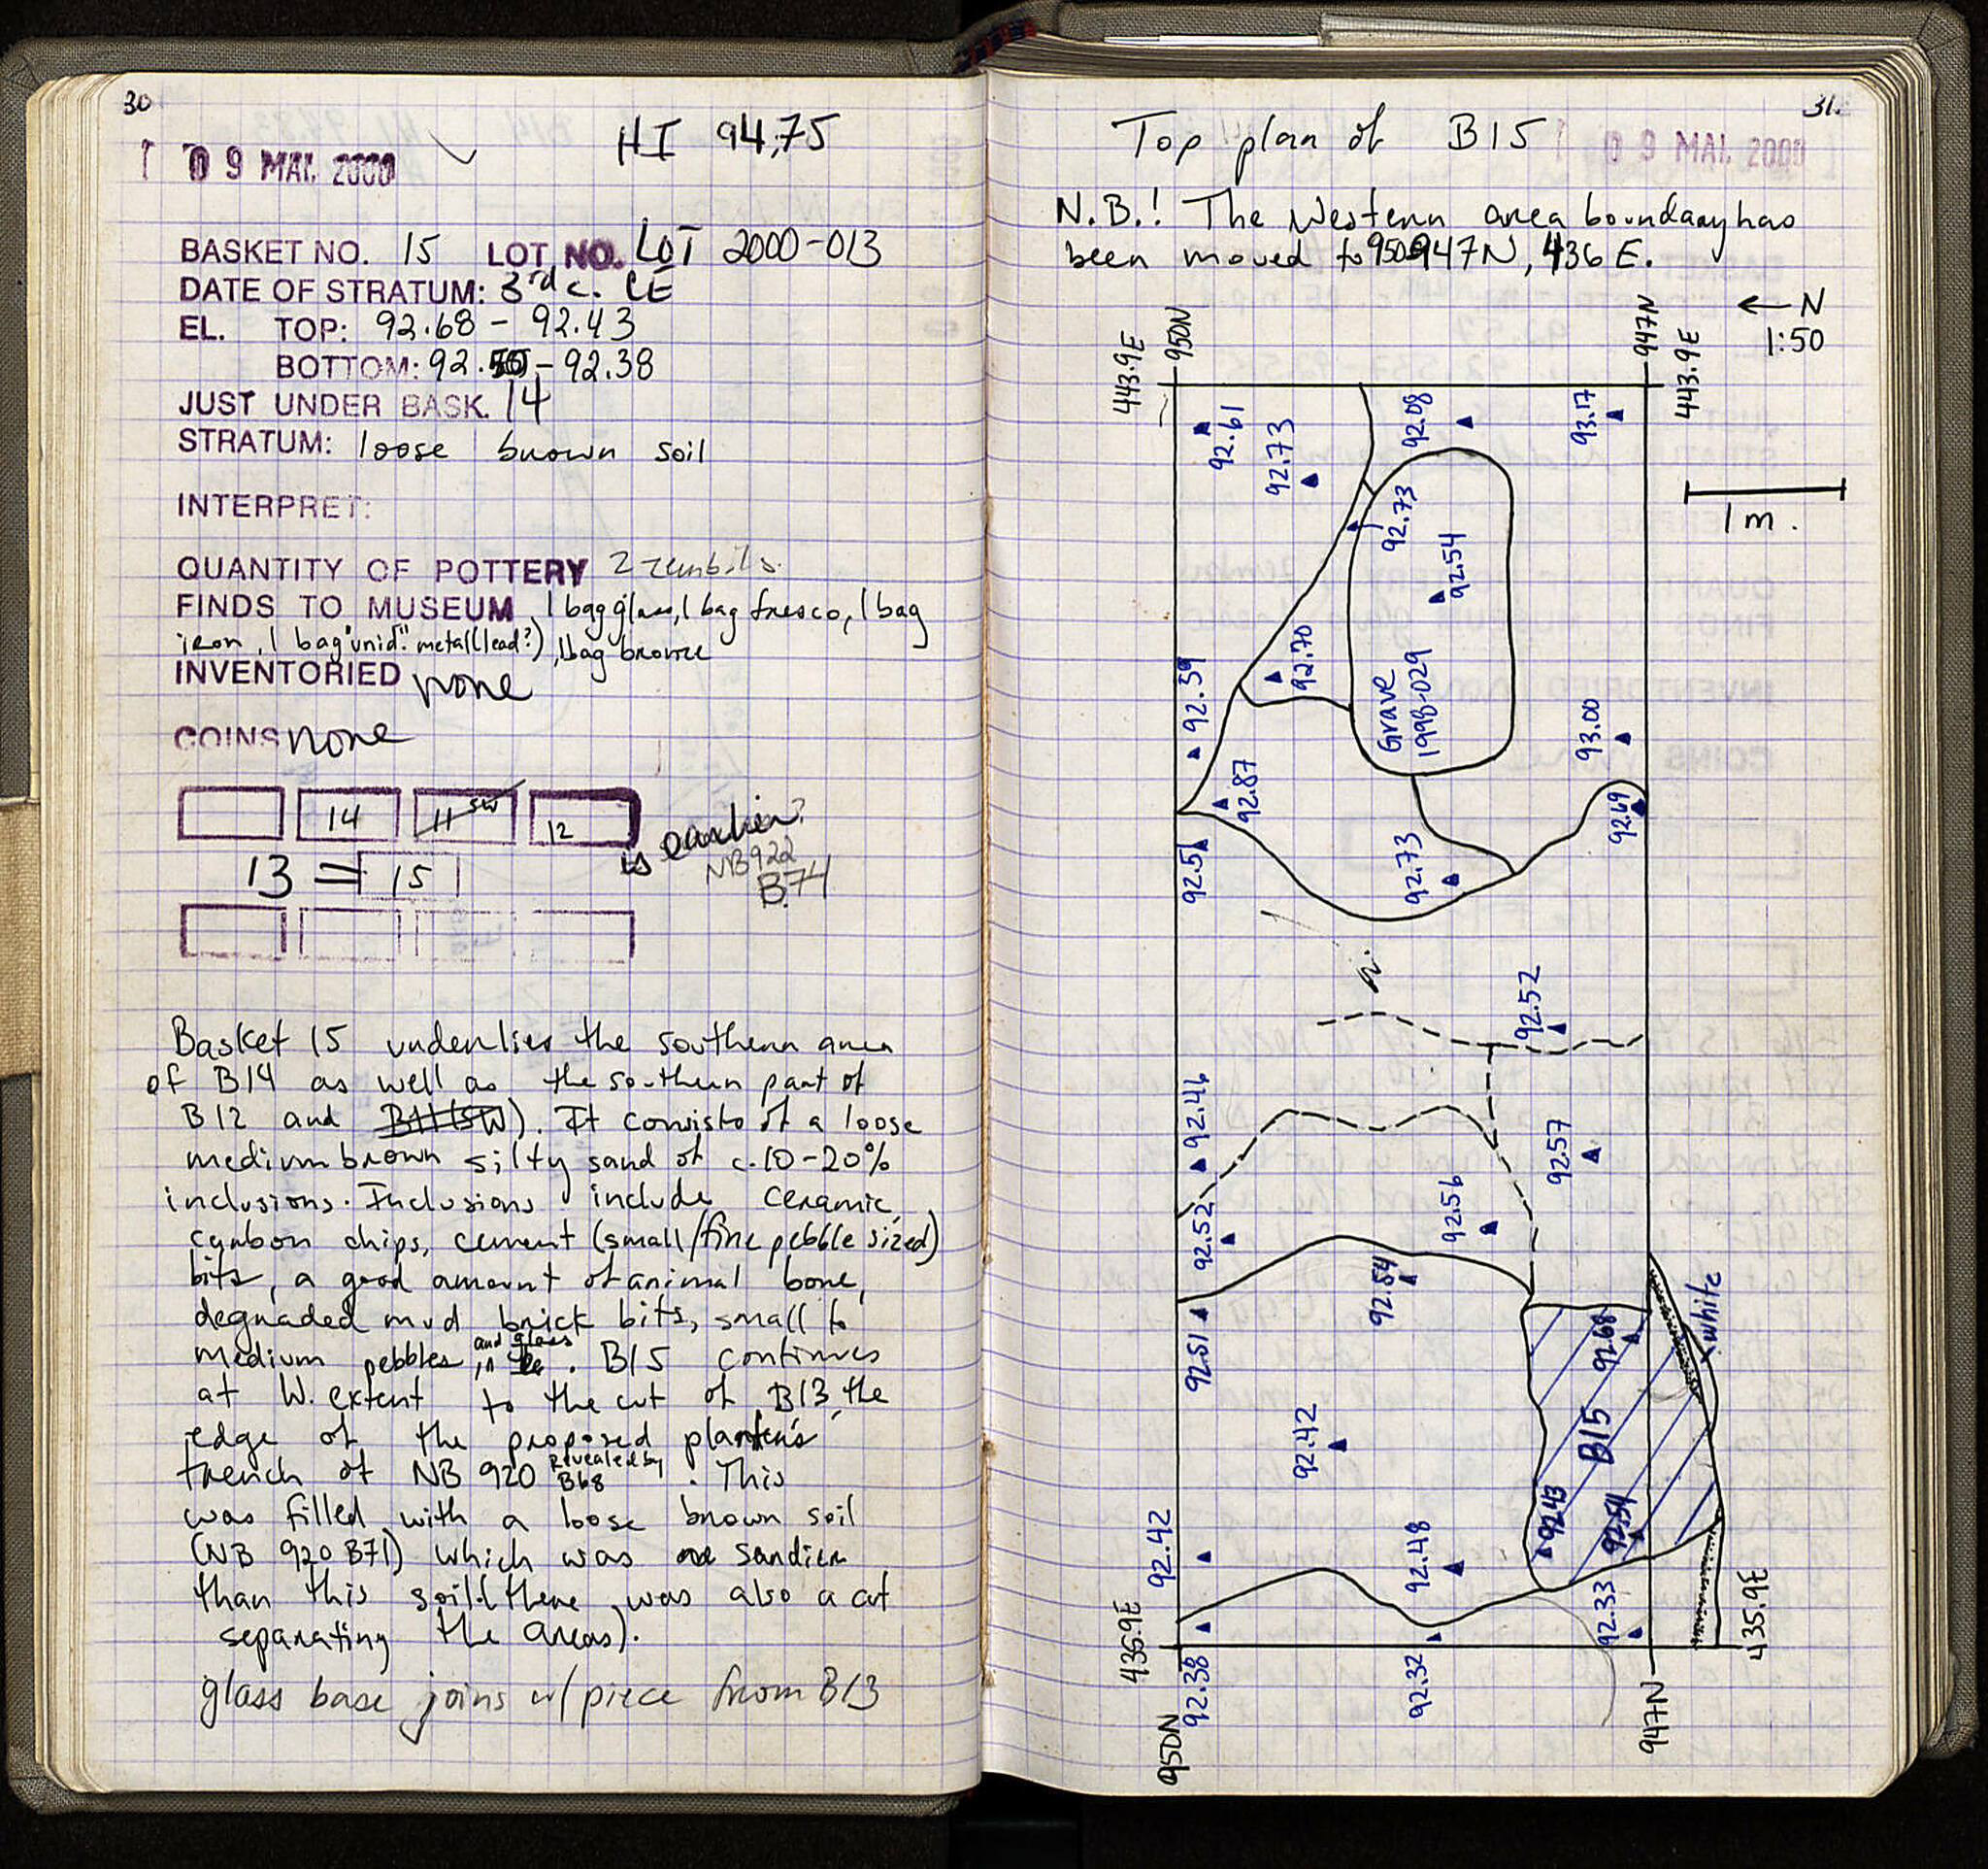 30
09 MAI. 2000
HI 94.75
BASKET NO. 15 LOT NO. LOT 2000-013
DATE OF STRATUM: 3rd c. CE
EL. TOP: 92.68 - 92.43
BOTTOM: 92. - 92.38
JUST UNDER BASK. 14
STRATUM: loose brown soil
INTERPRET:
QUANTITY OF POTTERY 2 zembils.
FINDS TO MUSEUM 1 bag glass, 1 bag fresco, 1 bag
iron, 1 bag "unid." metal (lead?), 1 bag bronze
INVENTORIED none
COINS none
14 11 SW 12
is earlier?
NB922
B.74
13 = 15
Basket 15 underlies the southern area
of B14 as well as the southern part of
B12 and B11 (SW). It consists of a loose
medium brown silty sand of c. 10-20%
inclusions. Inclusions include ceramic,
carbon chips, cement (small/fine pebble sized)
bits, a good amount of animal bone,
degraded mud brick bits, small to
medium pebbles and glass. B15 continues
at W. extent to the cut of B13, the
edge of the proposed planter's
trench of NB 920 revealed by B68. This
was filled with a loose brown soil
(NB 920 B71) which was sandier
than this soil (there was also a cut
separating the areas).
glass base joins w/ piece from B13
31.
Top plan of B15
09 MAI. 2000
N.B.! The Western area boundary has
been moved to 950 947N, 436 E.
← N
1:50
443.9E
950N
947N
443.9E
1 m.
92.61
92.73
92.08
93.17
92.73
92.54
92.70
92.59
Grave
1998-029
93.00
92.87
92.69
92.51
92.73
92.52
92.46
92.57
92.52
92.56
92.54
white
92.51
92.68
92.42
B15
92.43
92.54
92.42
92.48
92.33
435.9E
435.9E
92.38
92.32
950N
947N